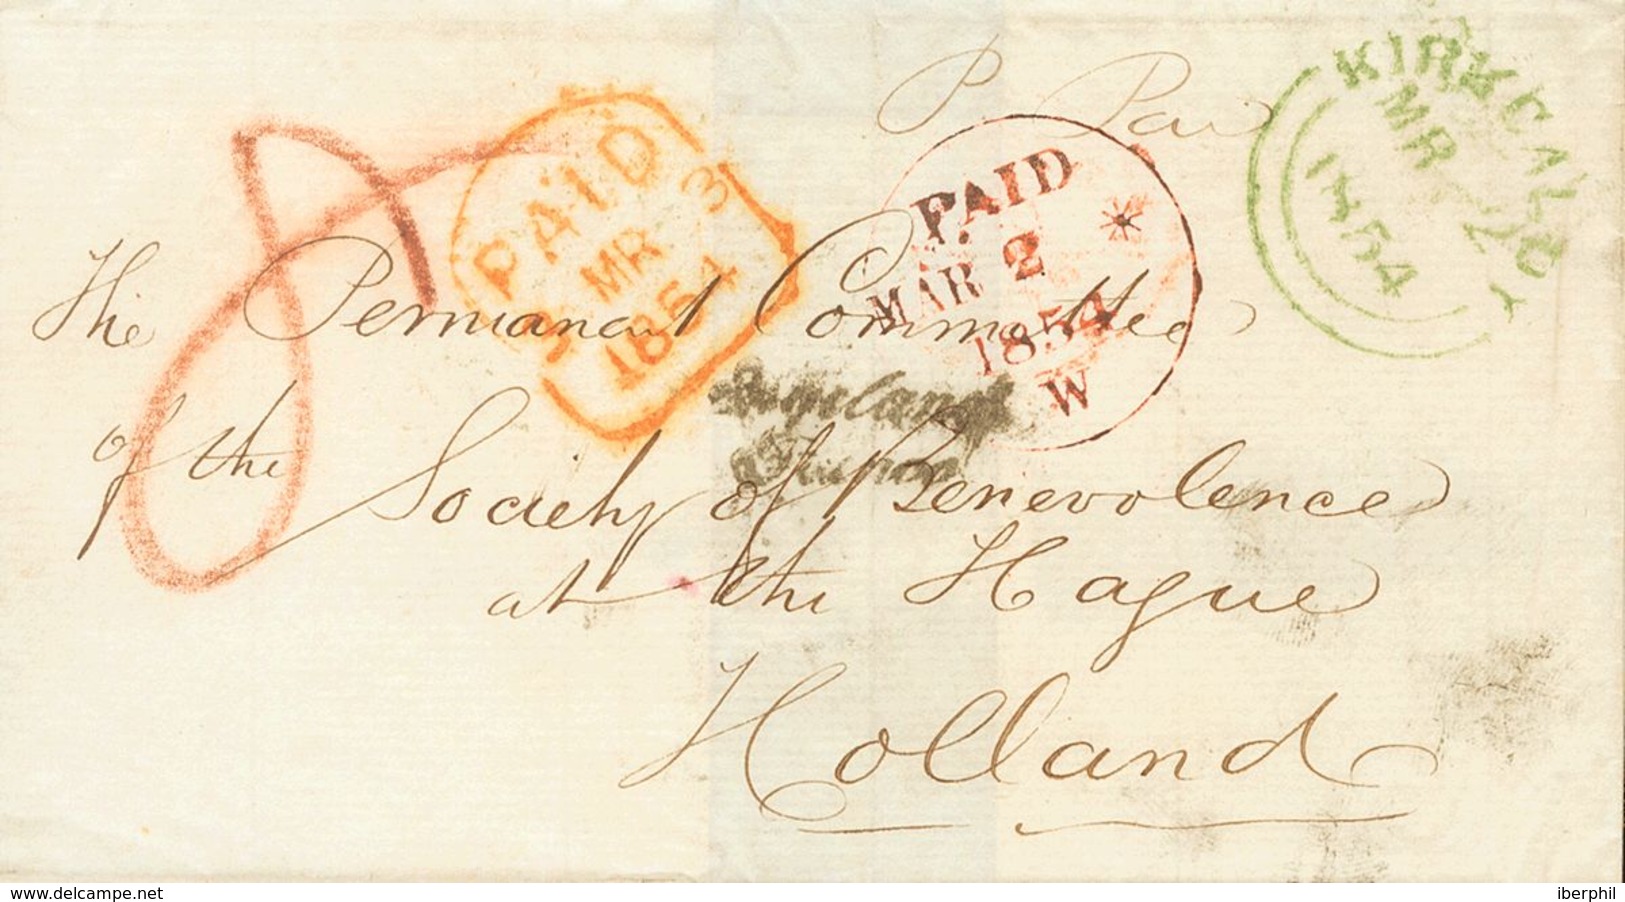 P. Pai
KIRKCALDY
MR 2
1854
PAID
MR 3
1854
PAID
MAR 2
1854
W
8
The Permanent Committee
of the Society of Benevolence
at the Hague
Holland
www.delcampe.net
iberphil